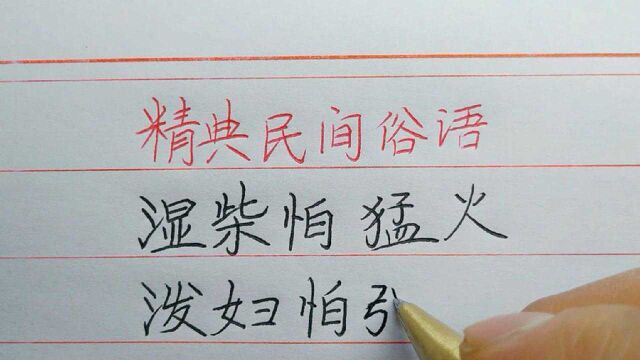 精典民间俗语
湿柴怕猛火
泼妇怕